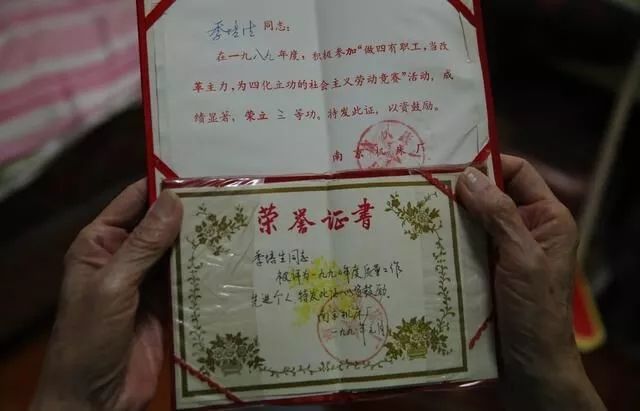 李培生 同志:
在一九八九年度: 积极参加“做四有职工, 当改
革主力, 为四化立功的社会主义劳动竞赛”活动, 成
绩显著, 荣立 三 等功。特发此证, 以资鼓励。
南京机床厂
荣誉证书
李培生同志
被评为一九九〇年度质量工作
先进个人, 特发此证 以资鼓励。
南京机床厂
一九九一年元月